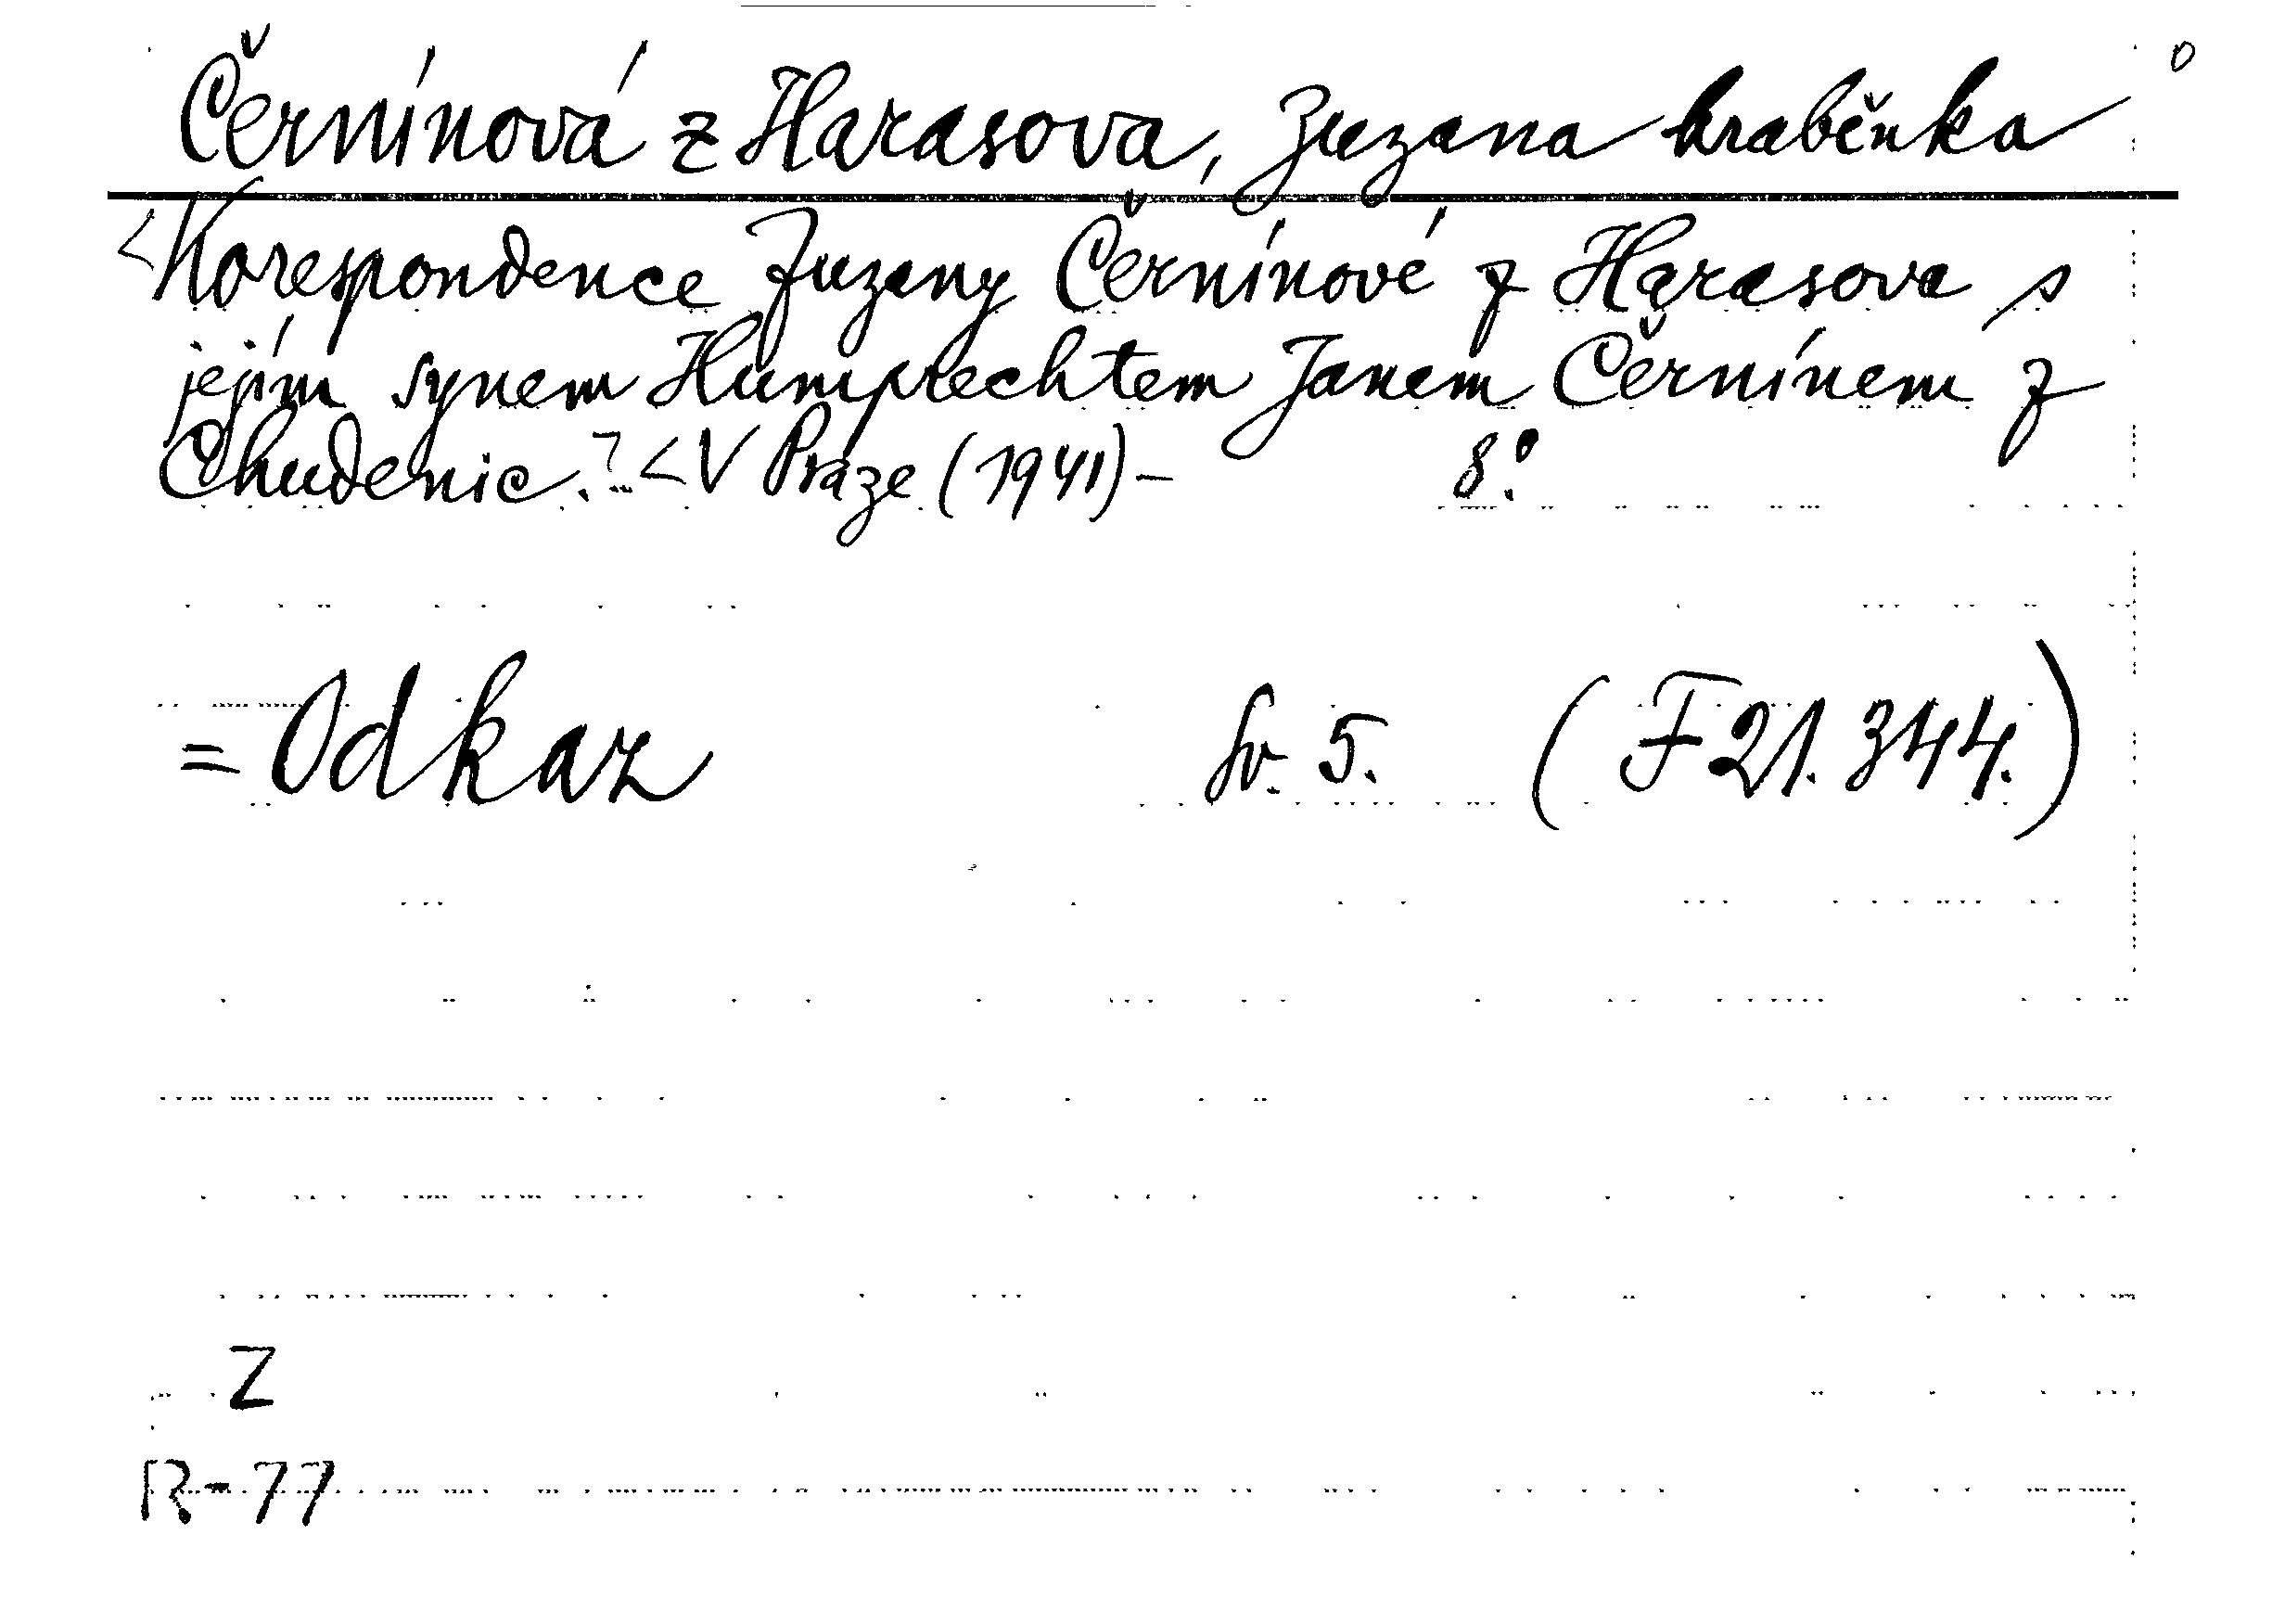 Černínová z Harasova, Zuzana hraběnka
<Korespondence Zuzany Černínové z Harasova s
jejím synem Humprechtem Janem Černínem z
Chudenic.> <V Praze (1941)- 8.°
= Odkaz Sv. 5. (F 21.344.)
Z
R-77